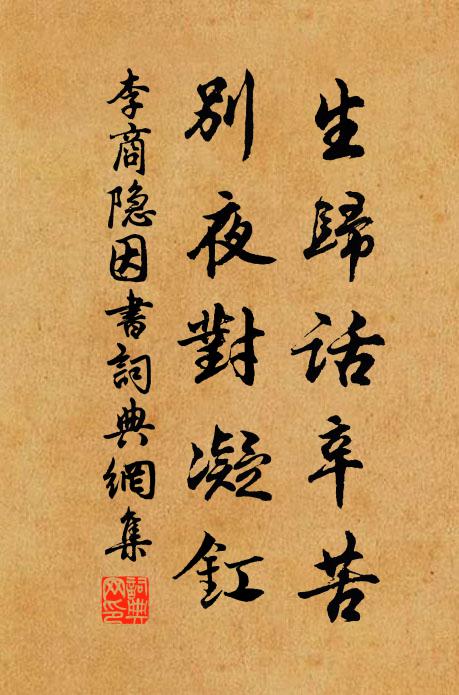 生歸話辛苦
別夜對凝釭
李商隐因書詞典網集
詞典网印